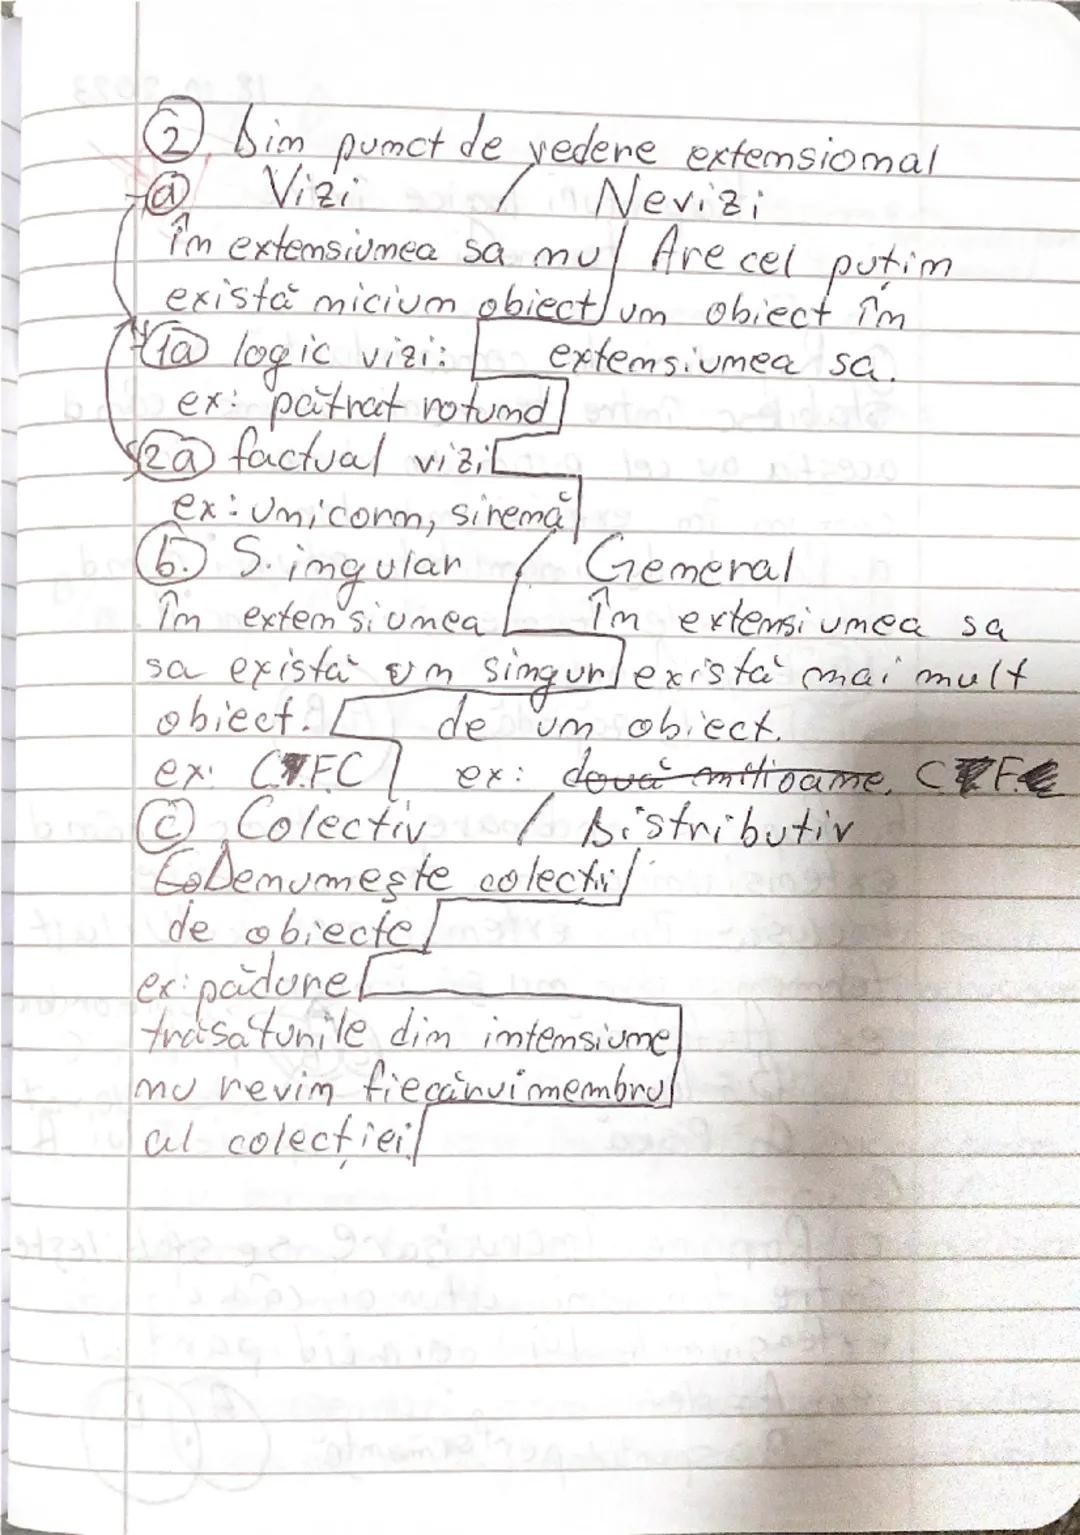 ② Din punct de vedere extensional
ⓐ Vizi / Nevizi
În extensiunea sa nu / Are cel puțin
există niciun obiect / un obiect în
1a logic vizi: extensiunea sa.
ex: pătrat rotund
2a factual vizi
ex: unicorn, sirenă
b. Singular / General
În extensiunea În extensiunea sa
sa există un singur există mai mult
obiect. de un obiect.
ex: C.F.C ex: două milioane, C F
ⓒ Colectiv / Distributiv
Denumește colecții
de obiecte
ex: pădure
trăsăturile din intensiune
nu revin fiecărui membru
al colecției